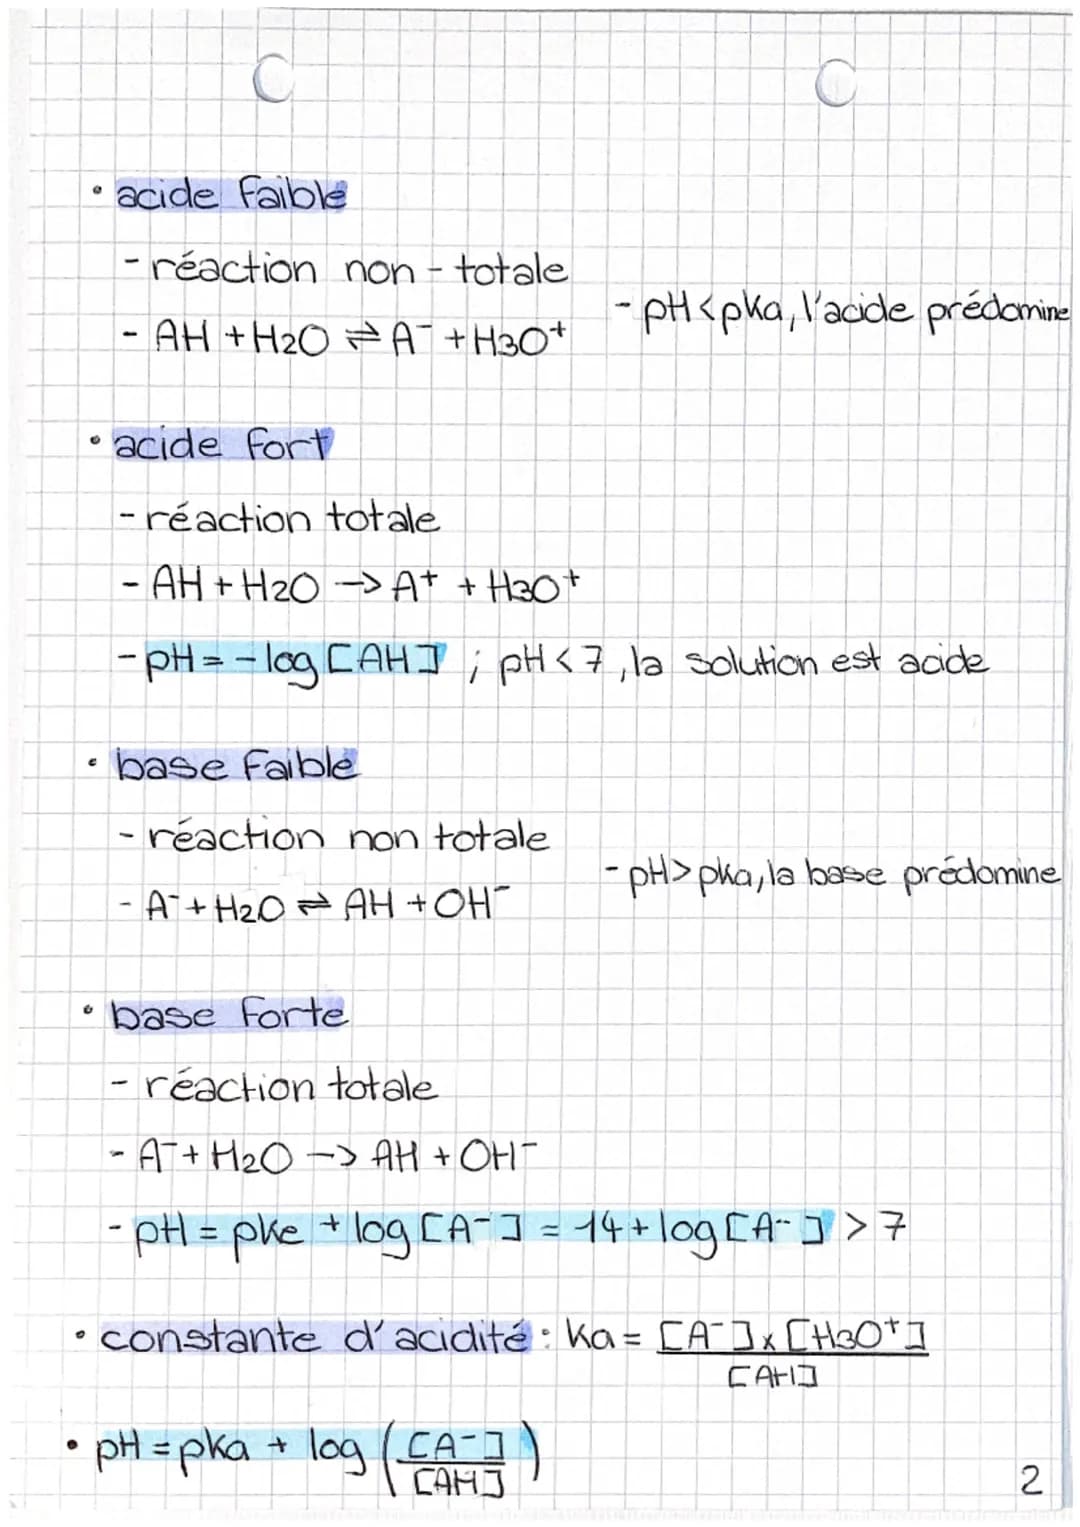 • acide faible
- réaction non-totale
- AH + H2O ⇌ A⁻ + H3O⁺
- pH < pka, l'acide prédomine
• acide fort
- réaction totale
- AH + H2O -> A⁺ + H3O⁺
- pH = -log [AH] ; pH < 7, la solution est acide
• base faible
- réaction non totale
- A⁻ + H2O ⇌ AH + OH⁻
- pH > pka, la base prédomine
• base forte
- réaction totale
- A⁻ + H2O -> AH + OH⁻
- pH = pke + log [A⁻] = 14 + log [A⁻] > 7
• constante d'acidité : Ka = [A⁻] x [H3O⁺]
[AH]
• pH = pka + log ( [A⁻] )
[AH]
2